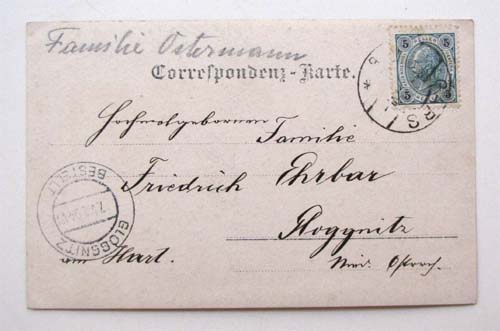 Familie Ostermann
Correspondenz-Karte.
5 5
Hochwolgebornen
Familie
Friedrich Ehrbar
Gloggnitz
am Hart.
Nied. Österr.
GLOGGNITZ
BESTELLT